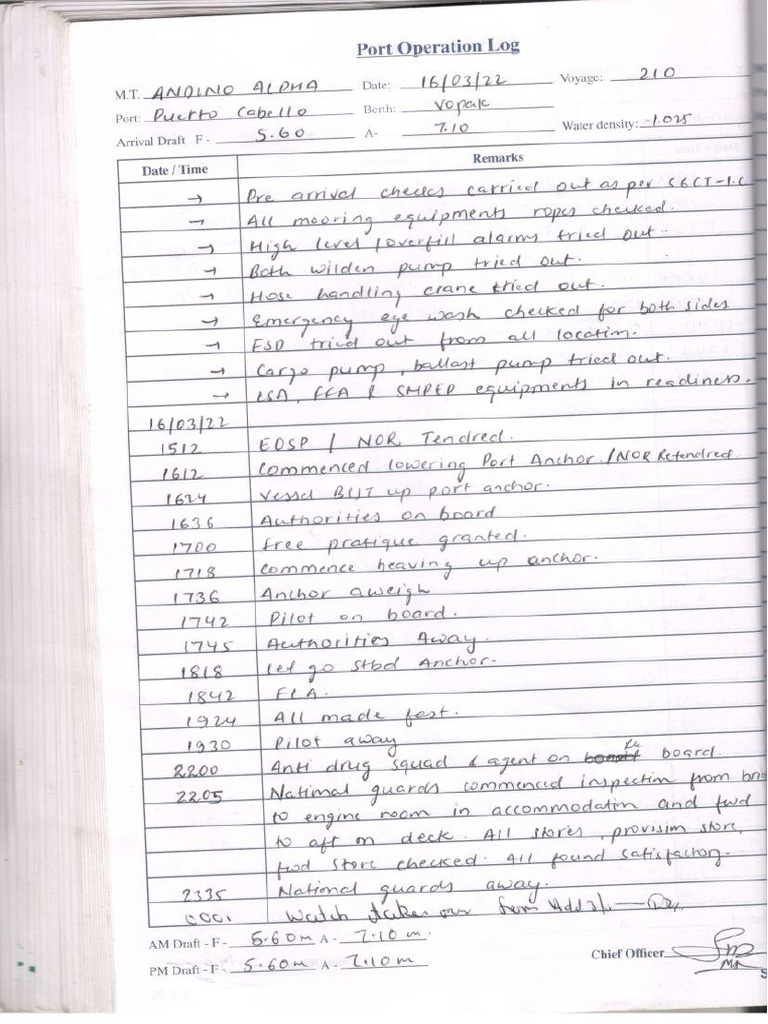 Port Operation Log
M.T. ANDINO ALPHA Date: 16/03/22 Voyage: 210
Port: Puerto Cabello Berth: Vopak
Arrival Draft F - 5.60 A- 7.10 Water density: -1.025
Date / Time Remarks
→ Pre arrival checks carried out as per
→ All mooring equipments ropes checked.
→ High level / overfill alarms tried out -
→ Both wilden pump tried out.
→ Hose handling crane tried out.
→ Emergency eye wash checked for both sides
→ ESD tried out from all location.
→ Cargo pump, ballast pump tried out.
→ LSA, FFA & SMPEP equipments in readiness.
16/03/22
1512 EOSP / NOR Tendred.
1612 Commenced lowering Port Anchor. /NOR Retendred
1624 Vessel BUT up port anchor.
1636 Authorities on board
1700 free pratique granted.
1718 Commence heaving up anchor.
1736 Anchor aweigh
1742 Pilot on board.
1745 Authorities Away.
1818 Let go Stbd Anchor-
1842 FLA.
1924 All made fast.
1930 Pilot away
2200 Anti drug squad & agent on board.
2205 National guards commenced inspection from
to engine room in accommodation and fwd
to aft on deck. All stores, provision store,
fwd store checked. All found satisfactory.
2335 National guards away.
0001 Watch taken over from
AM Draft - F - 5.60m A - 7.10 m.
Chief Officer
PM Draft - F - 5.60m A - 7.10 m